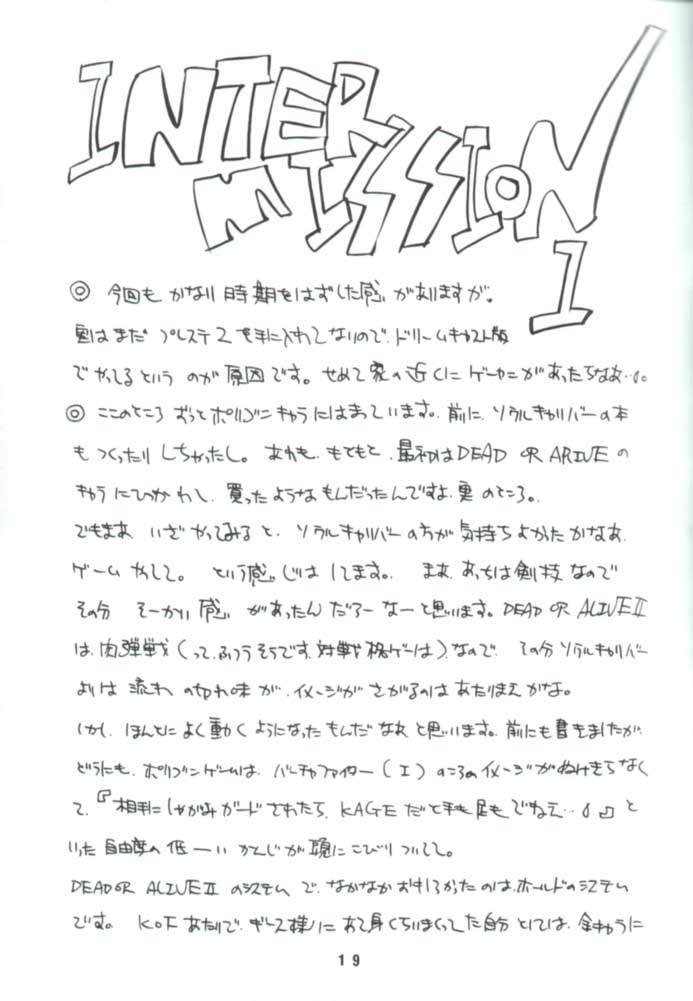 INTER
MISSION
1
◎ 今回も かなり時期をはずした感がありますが。
実はまだ プレステ2を手に入れてないので、ドリームキャスト版
でやってるという のが原因です。せめて家の近くに ゲーセンがあったらなぁ…。
◎ ここのところ ずっとポリゴンキャラにはまっています。前に、ソウルキャリバーの本
もつくったり しちゃったし。あれも、もともと、最初はDEAD OR ARIVEの
キャラにひっかかって、買ったようなもんだったんですよ、実のところ。
でもまあ いざ やってみると、ソウルキャリバーの方が気持ちよかったかなぁ、
ゲームやってて。 という感じはしてます。 まあ、あっちは剣技なので
その分 そーかい感 があったんだろーなーと思います。DEAD OR ALIVE II
は、肉弾戦(って、ふつうそうです、対戦格ゲーは)なので、その分 ソウルキャリバー
よりは 流れの切れ味が、イメージがさがるのはあたりまえかな。
しかし、ほんとによく動くようになったもんだなぁと思います。前にも書きましたが、
どうにも、ポリゴンゲームは、バーチャファイター(I)のころのイメージがぬけきらなく
て、『相手にしゃがみガードされたら、KAGEだと手も足もでねえ…』と
いった自由度の低ーいかんじが頭にこびりついてて。
DEAD OR ALIVE IIのシステムで、なかなかおもしろかったのは、ホールドのシステム
です。 KOFあたりで、ギース様にあて身くらいまくってた自分としては、全キャラに
19